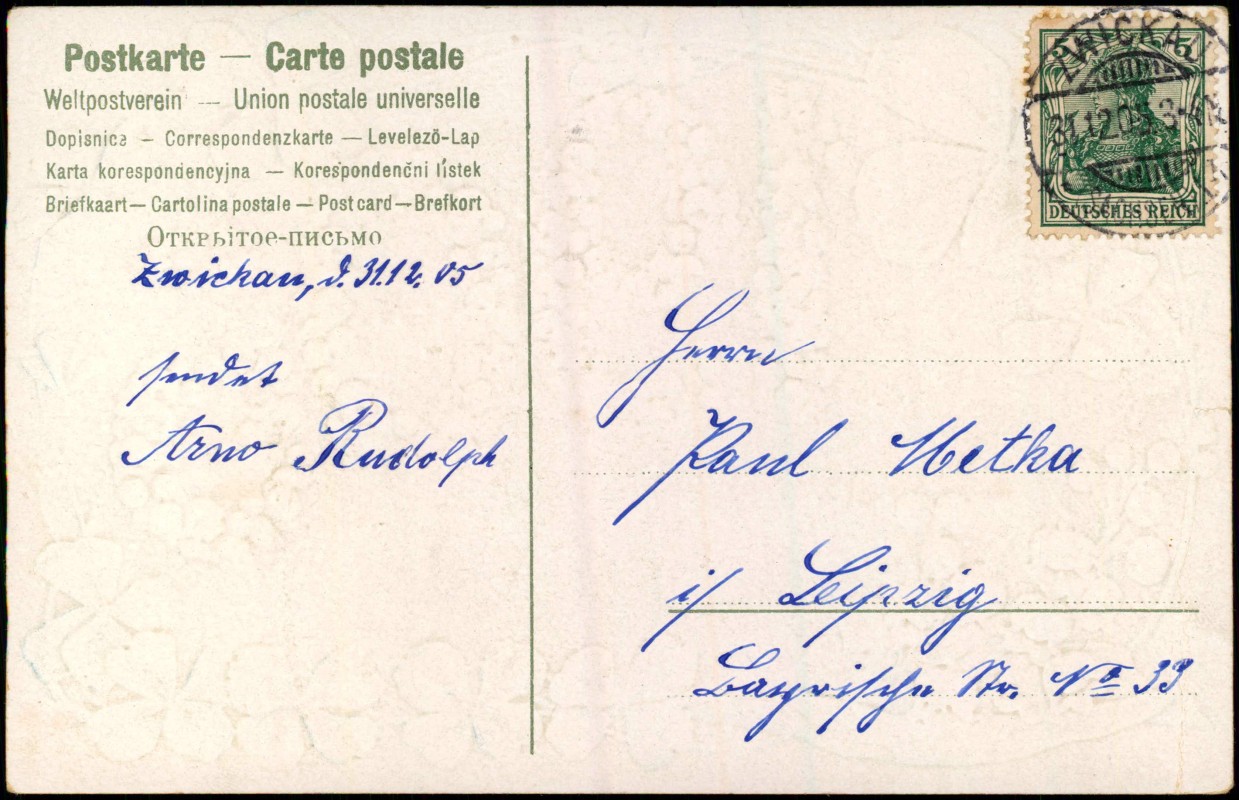 Postkarte — Carte postale
Weltpostverein — Union postale universelle
Dopisnica — Correspondenzkarte — Levelező-Lap
Karta korespondencyjna — Korespondenční lístek
Briefkaart — Cartolina postale — Post card — Brefkort
Открытое-письмо
Zwickau, d. 31.12.05
sendet
Arno Rudolph
ZWICKAU
5 5
31.12.05. 3-4N.
DEUTSCHES REICH
Herrn
Paul Metka
i/ Leipzig
Bayrische Str. No 33